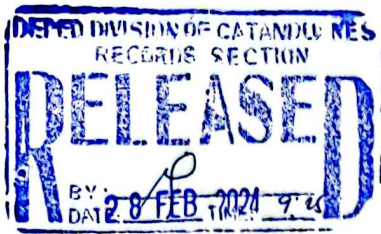 DEPED DIVISION OF CATANDUANES
RECORDS SECTION
RELEASED
BY:
DATE 28 FEB 2024 TIME: